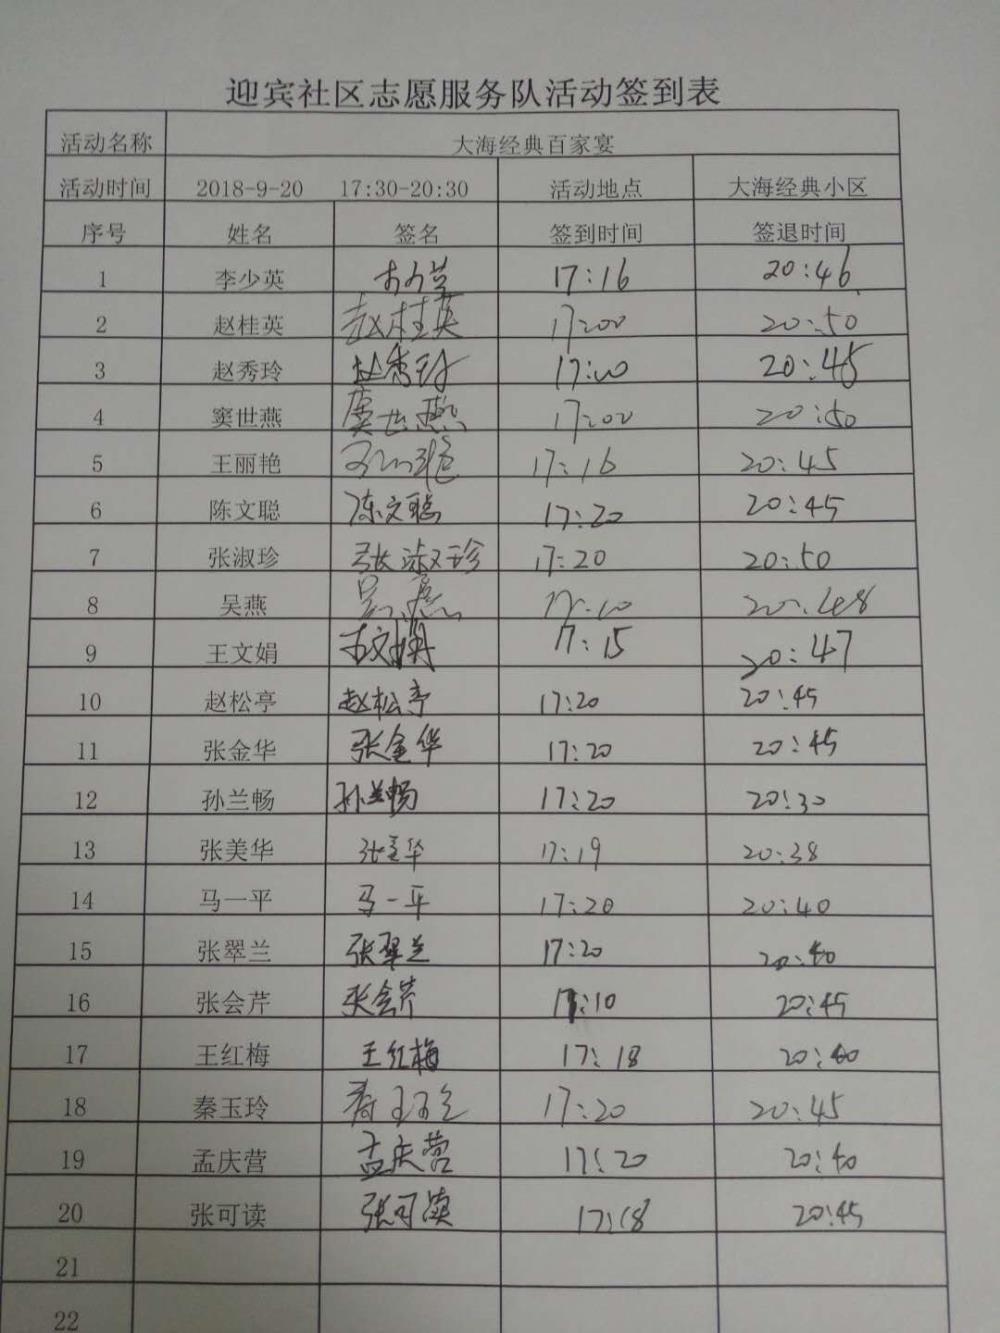 迎宾社区志愿服务队活动签到表
活动名称 大海经典百家宴
活动时间 2018-9-20 17:30-20:30 活动地点 大海经典小区
序号 姓名 签名 签到时间 签退时间
1 李少英 17:16 20:46
2 赵桂英 赵桂英 17:00 20:50
3 赵秀玲 赵秀玲 17:00 20:45
4 窦世燕 窦世燕 17:00 20:50
5 王丽艳 王丽艳 17:16 20:45
6 陈文聪 陈文聪 17:20 20:45
7 张淑珍 张淑珍 17:20 20:50
8 吴燕 吴燕 17:10 20:48
9 王文娟 王文娟 17:15 20:47
10 赵松亭 赵松亭 17:20 20:45
11 张金华 张金华 17:20 20:45
12 孙兰畅 孙兰畅 17:20 20:30
13 张美华 张美华 17:19 20:38
14 马一平 马一平 17:20 20:40
15 张翠兰 张翠兰 17:20 20:40
16 张会芹 张会芹 17:10 20:45
17 王红梅 王红梅 17:18 20:40
18 秦玉玲 秦玉玲 17:20 20:45
19 孟庆营 孟庆营 17:20 20:40
20 张可读 张可读 17:18 20:45
21
22